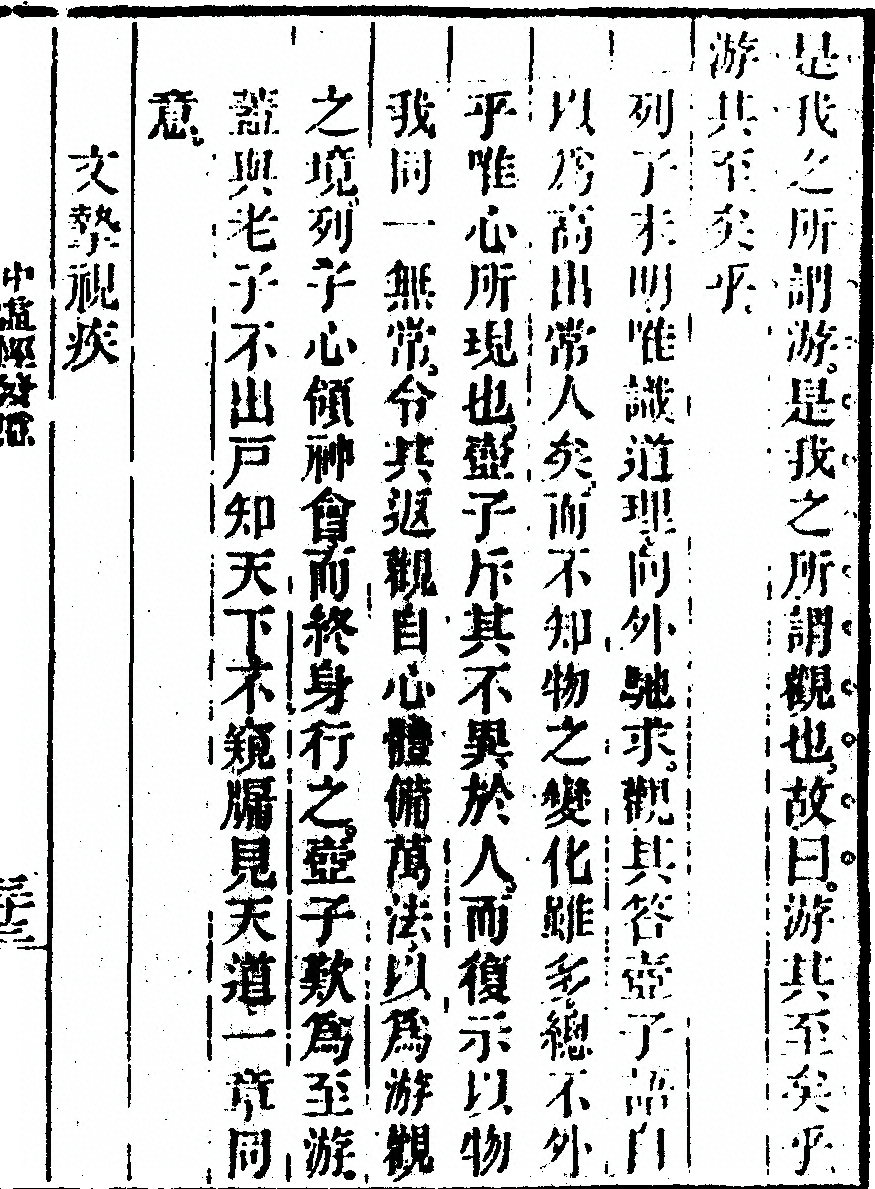 是我之所謂游。是我之所謂觀也。故曰。游其至矣乎。
游其至矣乎。
列子未明唯識道理。向外馳求。觀其答壺子語。自
以爲高出常人矣。而不知物之變化雖多。總不外
乎唯心所現也。壺子斥其不異於人。而復示以物
我同一無常。令其返觀自心。體備萬法。以爲游觀
之境。列子心領神會。而終身行之。壺子歎爲至游。
蓋與老子不出戶知天下。不窺牖見天道一章同
意。
文摯視疾
三十三